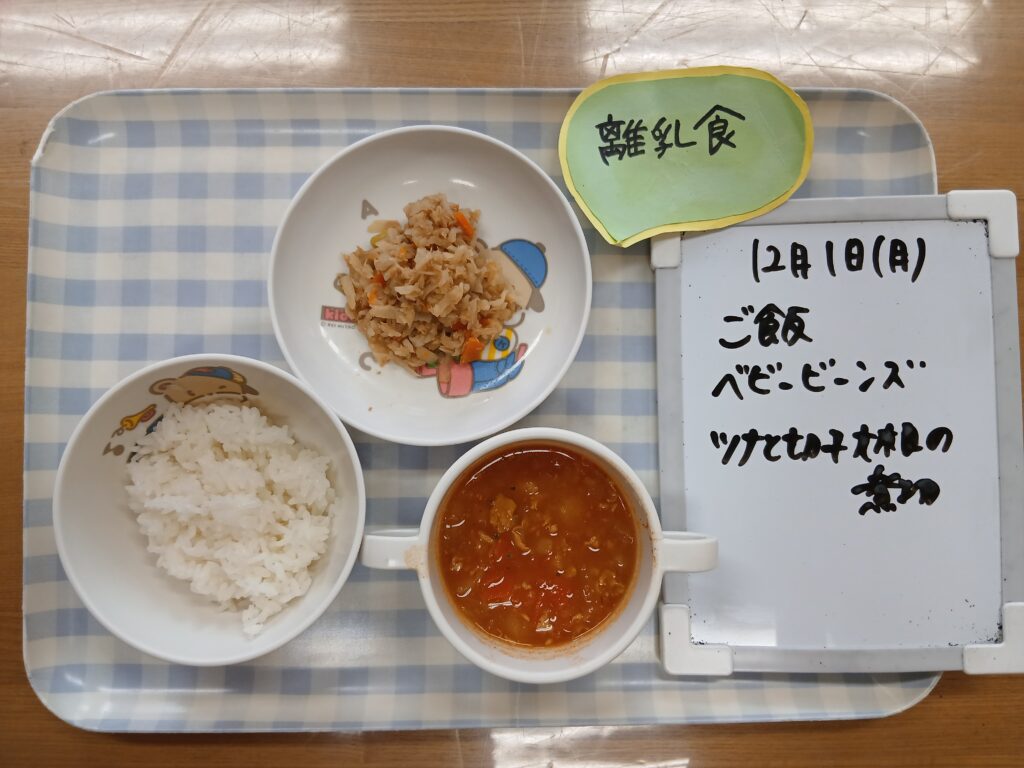 離乳食
12月1日(月)
ご飯
ベビービーンズ
ツナと切干大根の
煮物
A